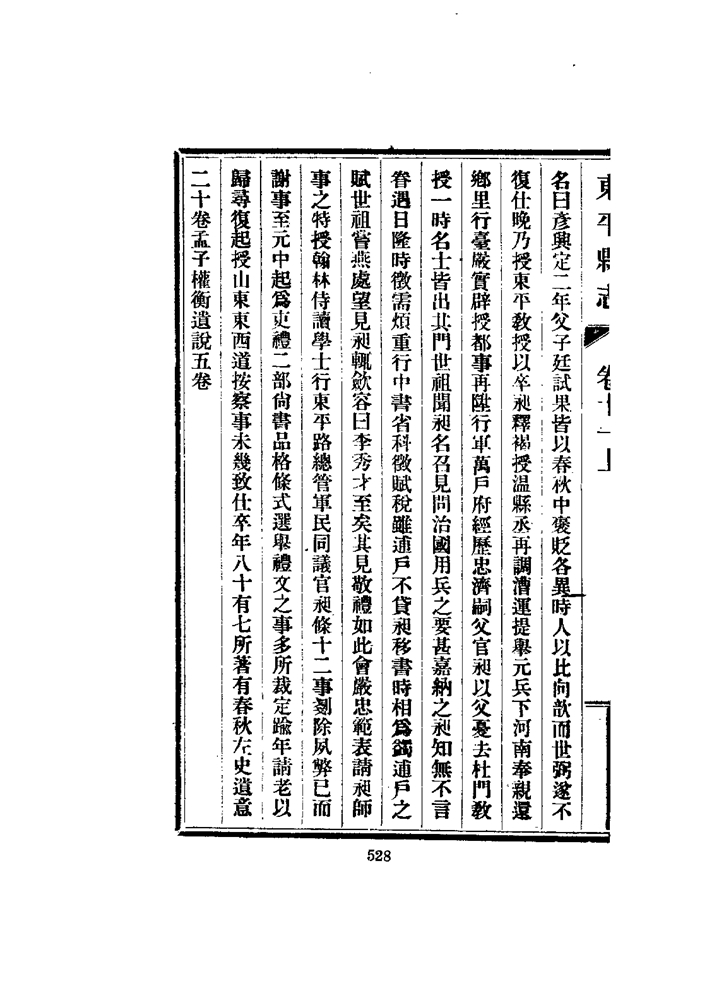 東平縣志 卷十一上
名曰彥興定二年父子廷試果皆以春秋中褒貶各異時人以比向歆而世弼遂不
復仕晚乃授東平敎授以卒昶釋褐授溫縣丞再調漕運提舉元兵下河南奉親還
鄕里行臺嚴實辟授都事再陞行軍萬戶府經歷忠濟嗣父官昶以父憂去杜門敎
授一時名士皆出其門世祖聞昶名召見問治國用兵之要甚嘉納之昶知無不言
眷遇日隆時徵需煩重行中書省科徵賦稅雖逋戶不貸昶移書時相爲蠲逋戶之
賦世祖嘗燕處望見昶輒斂容曰李秀才至矣其見敬禮如此會嚴忠範表請昶師
事之特授翰林侍讀學士行東平路總管軍民同議官昶條十二事剗除夙弊已而
謝事至元中起爲吏禮二部尙書品格條式選舉禮文之事多所裁定踰年請老以
歸尋復起授山東東西道按察事未幾致仕卒年八十有七所著有春秋左史遺意
二十卷孟子權衡遺說五卷
528